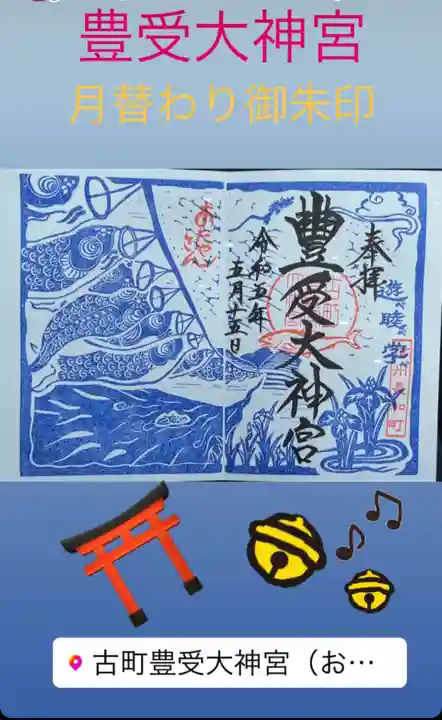 豊受大神宮
月替わり御朱印
奉拝
豊受大神宮
令和五年
五月廿五日
信州長和町
古町豊受大神宮（お…